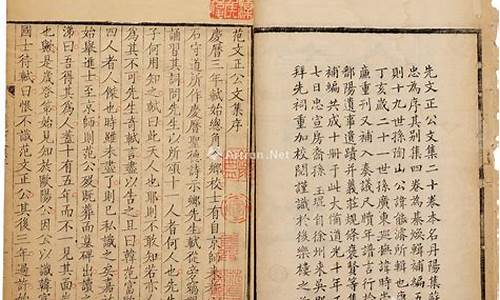 先文正公文集二十卷本名丹陽集蘇
忠為序其别集四卷為綦煥輯補五
則十九世孫陶山公諱能濬所輯
丁亥歲二十一世孫廣東巡撫諱時
廉重刊又補入奏議尺牘年譜言行
鄱陽遺事遺蹟并義莊規條褒賢等
補編共成十册此大備道光十年
七日忠宣房裔孫玉琨自徐州來吳
拜先祠重加校閱謹識於後樂楼之
范文正公文集序
慶曆三年軾始總角入鄉校士有自京師來
石守道所作慶曆聖德詩示鄉先生軾從旁竊觀
誦習其詞問先生以所頌十一人者何人也先生
子何用知之軾曰此天人也耶則不敢知若亦
為其不可先生奇軾言盡以告之且曰韓范富
四人者人傑也時雖未盡了則已私識之矣嘉
始舉進士至京師則范公殁既葬而墓碑出讀之
涕曰吾得其為人蓋十有五年而不一見其面豈
也歟是歲登第始見知於歐陽公因公以識韓富
國士待軾曰恨不識范文正公其後三年過許
Artron.Net